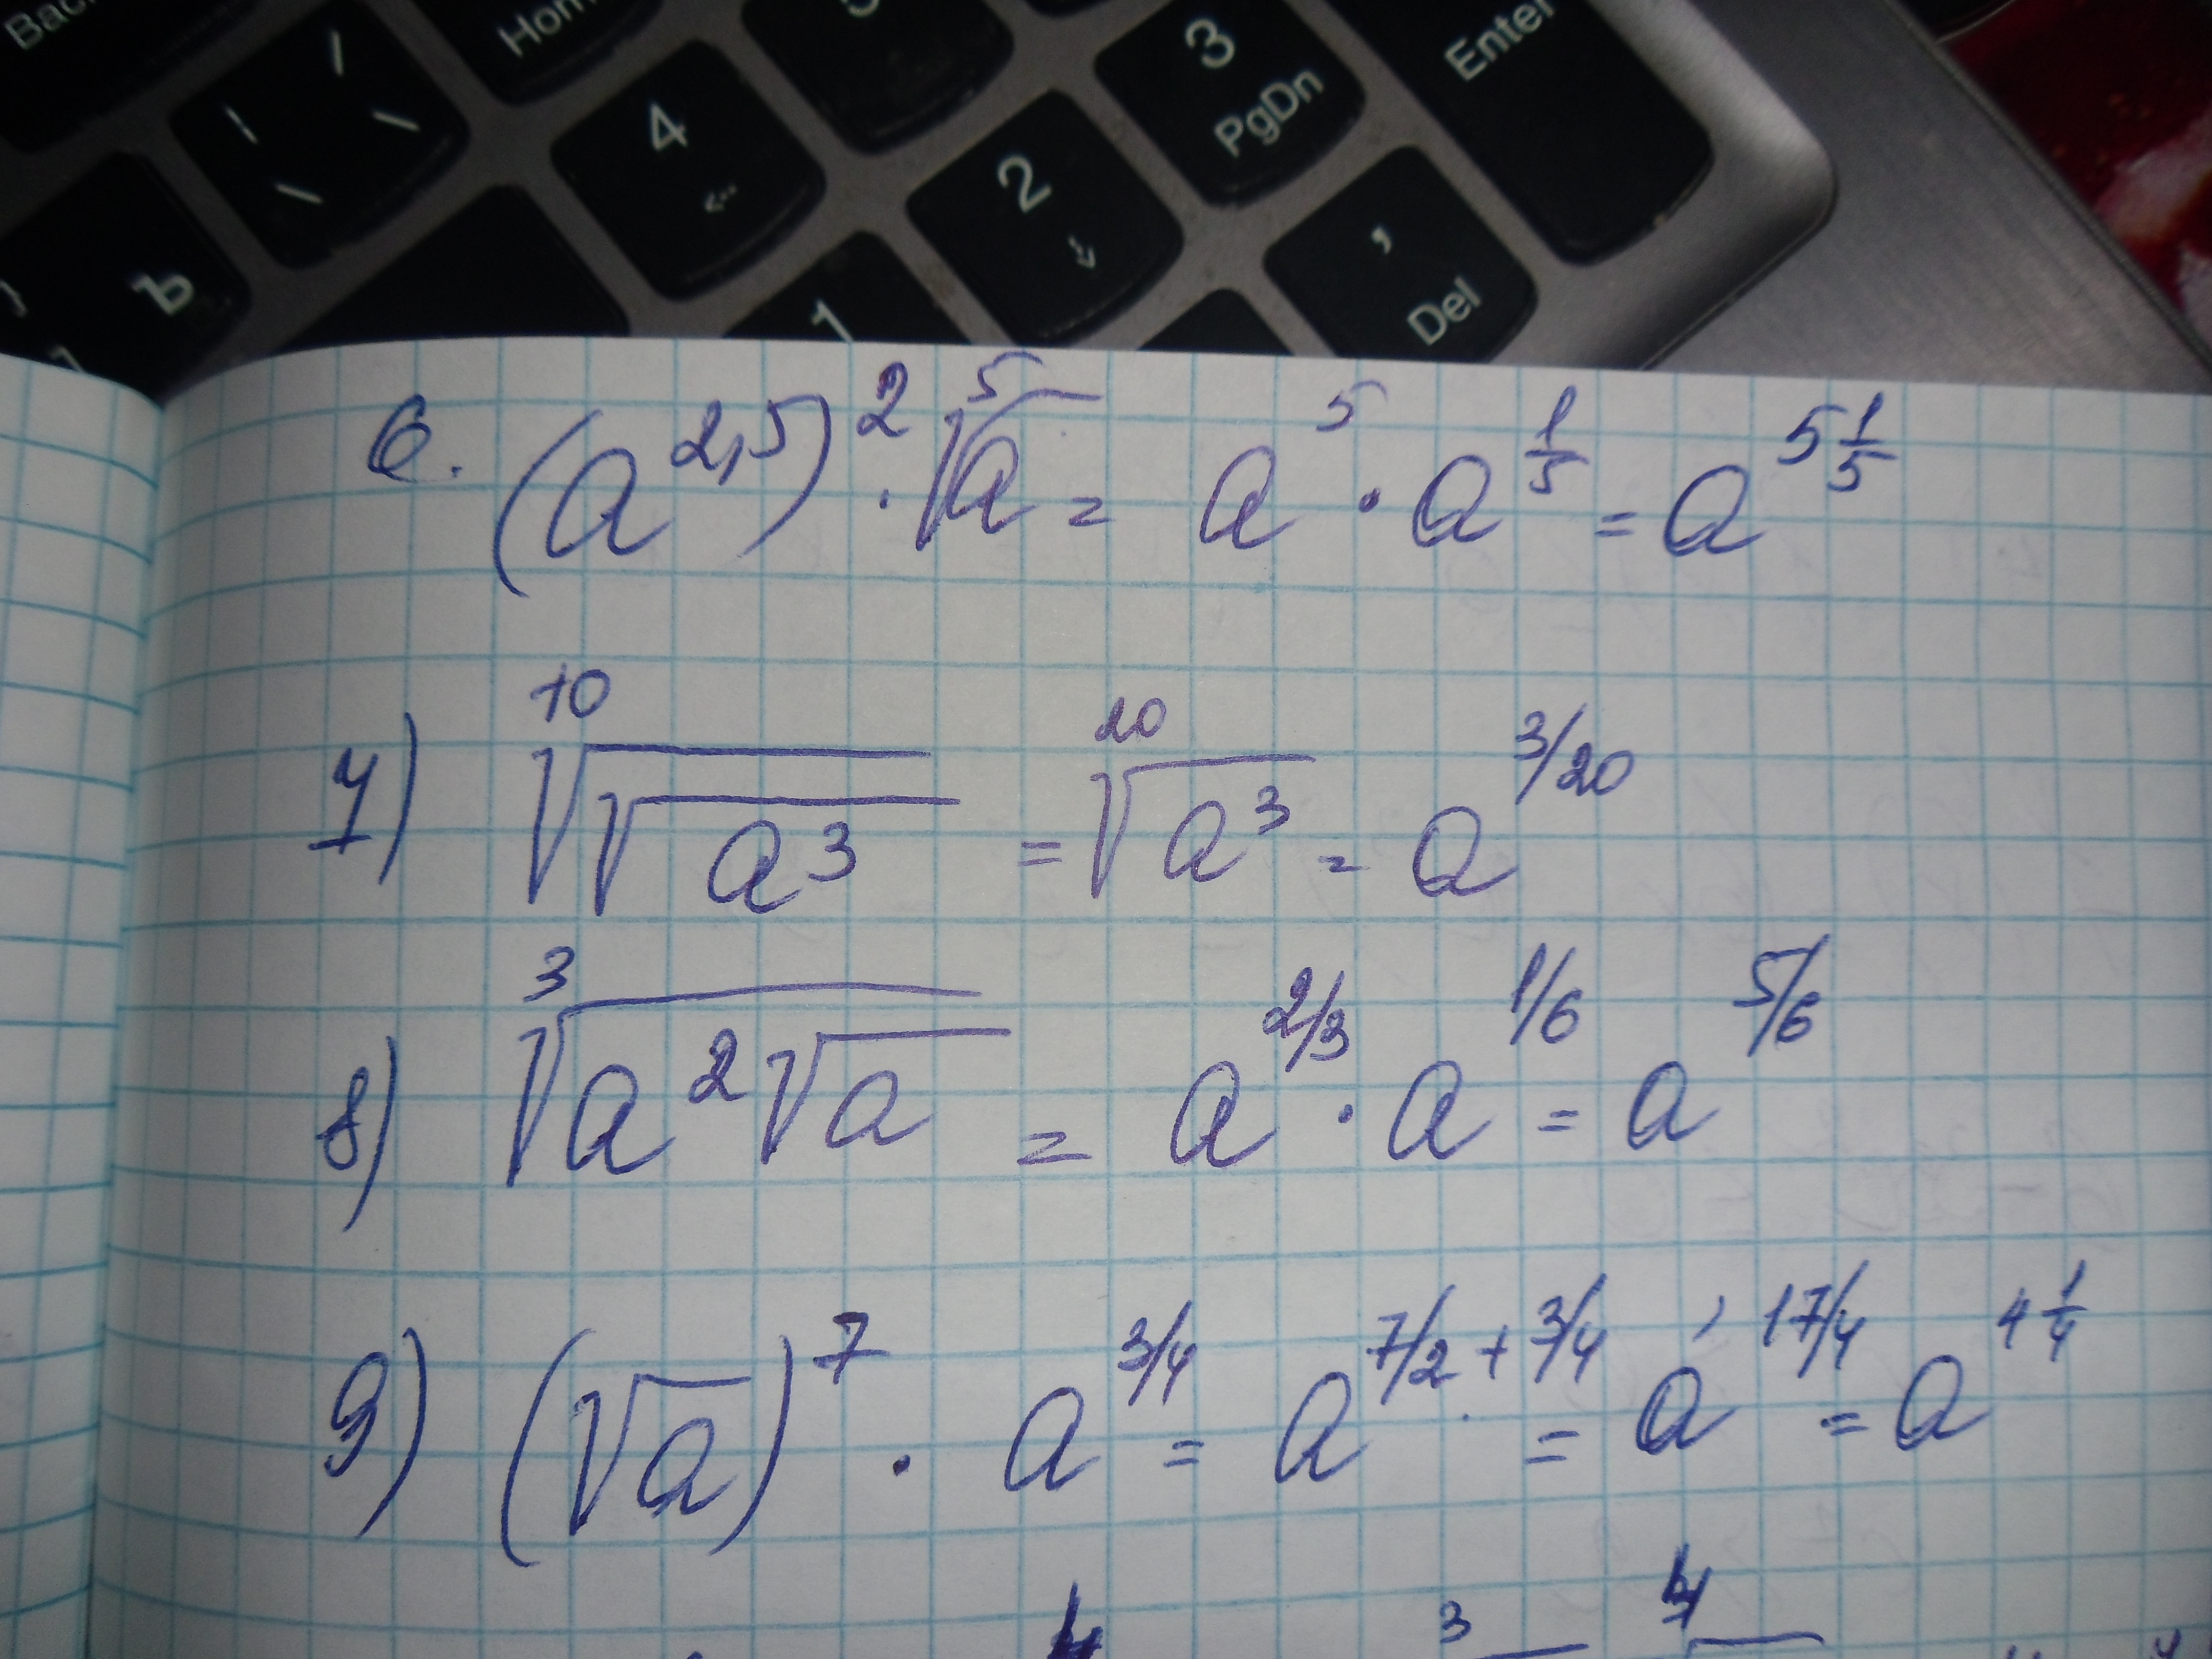 Bac
Hom
5
3
PgDn
Enter
4
2
,
Del
Ъ
1
6. (a^2,5)^2 · ⁵√a = a^5 · a^1/5 = a^5 1/5
7) ¹⁰√√a^3 = ²⁰√a^3 = a^3/20
8) ³√a^2√a = a^2/3 · a^1/6 = a^5/6
9) (√a)^7 · a^3/4 = a^7/2 + 3/4 = a^17/4 = a^4 1/4
3 4